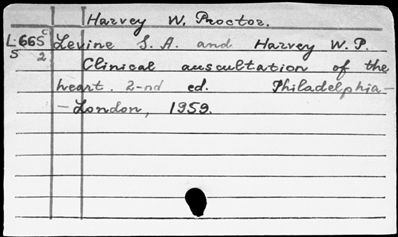 Harvey W. Proctor.
L.665c Levine S. A. and Harvey W. P.
S 2 Clinical auscultation of the
heart. 2-nd ed. Philadelphia-
-London, 1959.